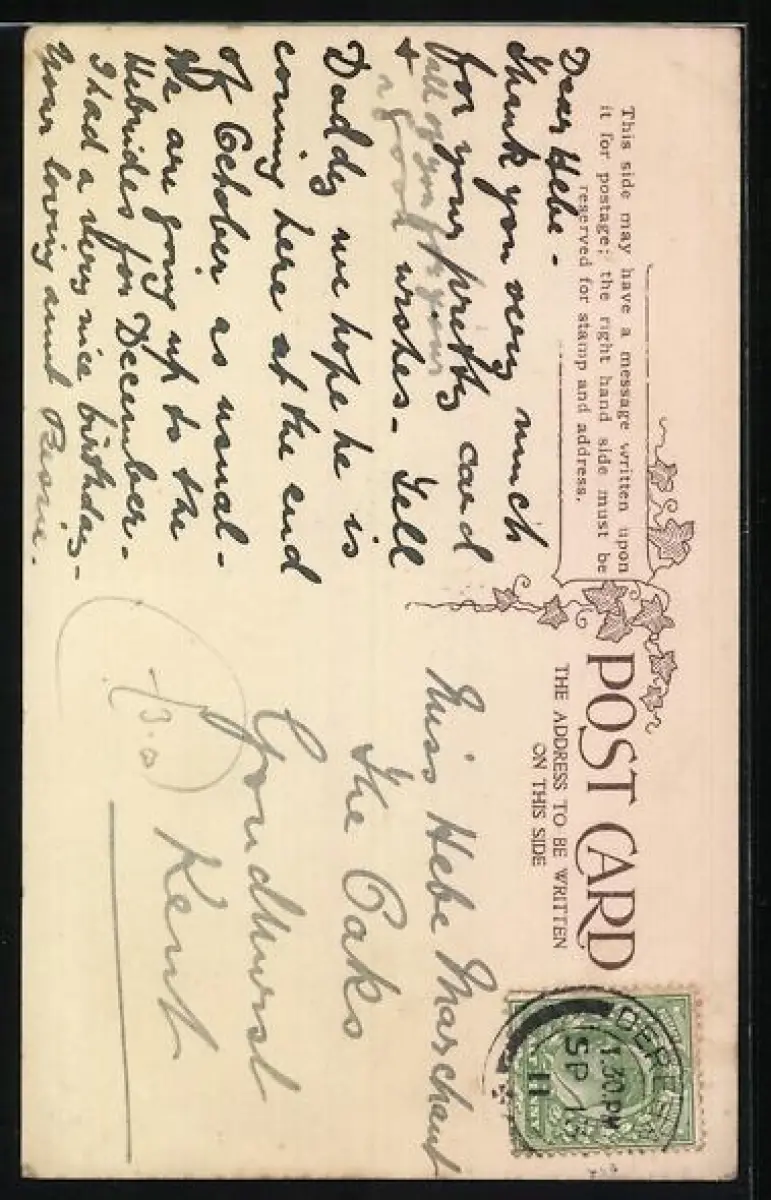 This side may have a message written upon
it for postage; the right hand side must be
reserved for stamp and address.
POST CARD
THE ADDRESS TO BE WRITTEN
ON THIS SIDE
Dear Hebe -
Thank you very much
for your pretty card
& all of you for your
good wishes - Tell
Daddy we hope he is
coming here at the end
of October as usual -
We are going up to the
Hebrides for December -
I had a very nice birthday -
Your loving aunt
Miss Hebe Marchant
The Oaks
Goudhurst
Kent
1.30 PM
SP 13
11